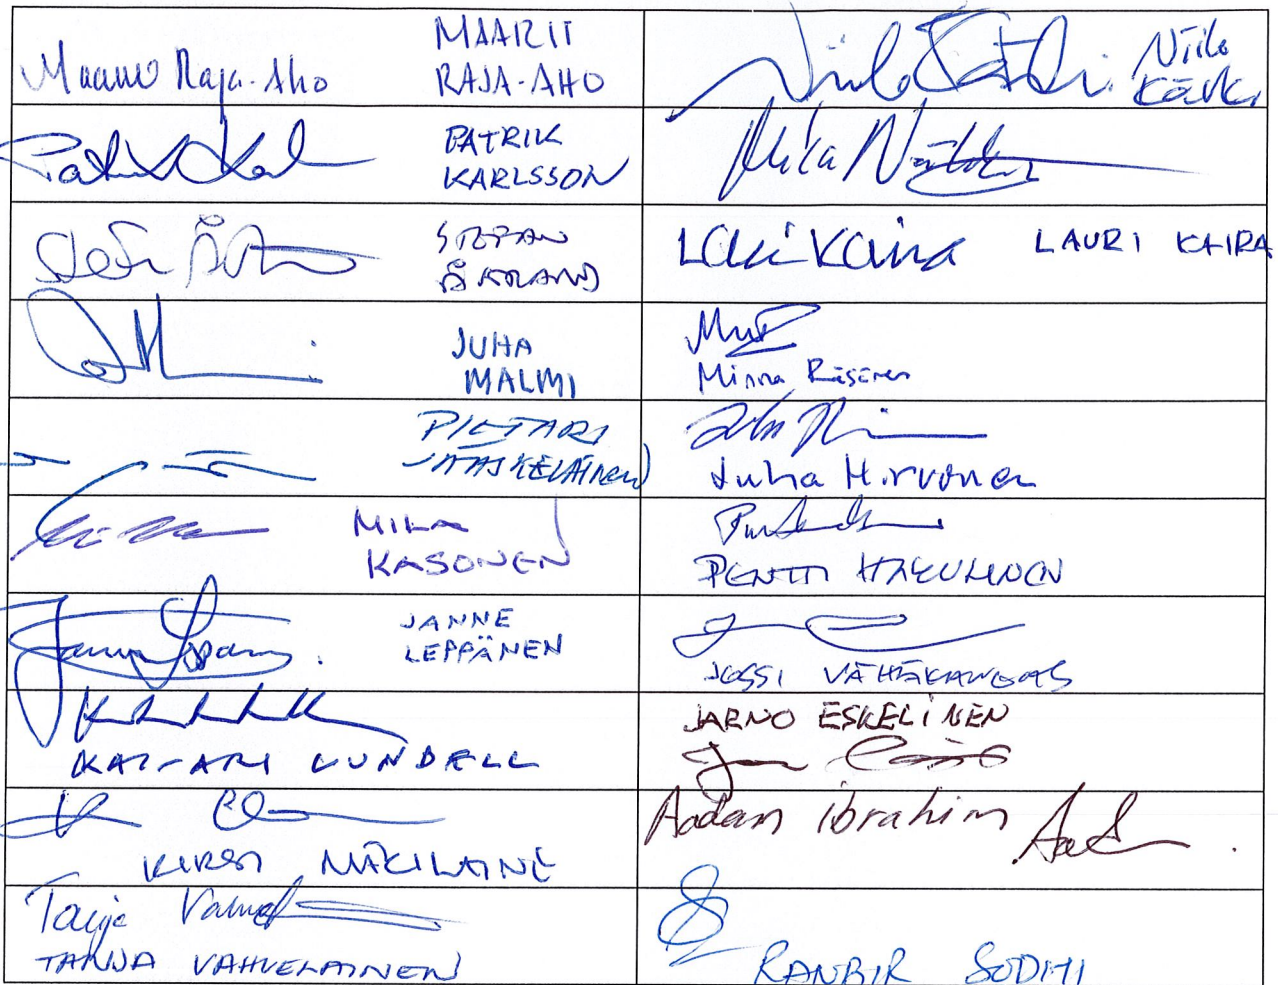 Maarit Raja-Aho MAARIT RAJA-AHO
Niilo Kärki Niilo Kärki
PATRIK KARLSSON
Mika
STEFAN ÅKRAND
Lauri Kaira LAURI KAIRA
JUHA MALMI
Minna Räsänen
PIETARI JÄÄSKELÄINEN
Juha Hirvonen
MIKA KASONEN
PENTTI
JANNE LEPPÄNEN
JUSSI VÄHÄKANGAS
LUNDELL
JARNO ESKELINEN
KIRSI
Aadan ibrahim
Tanja
TANJA VAHVELAINEN
RANBIR SODHI